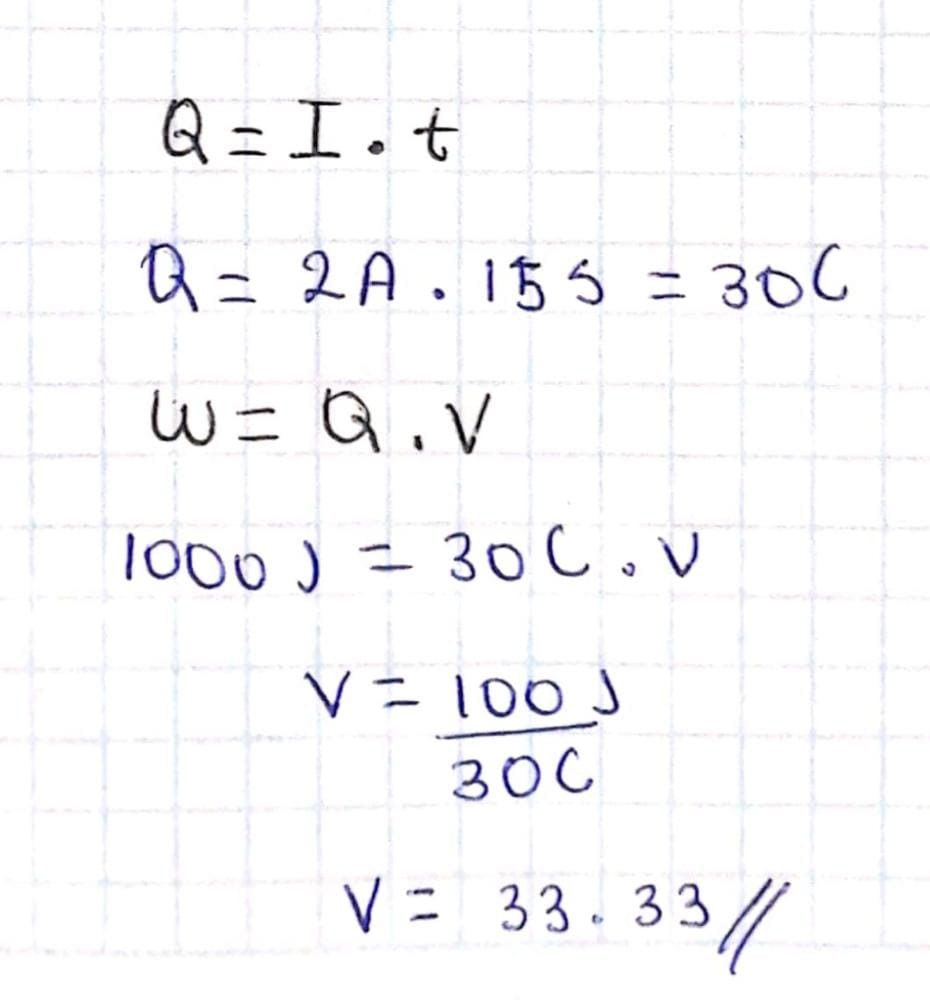 Q = I . t
Q = 2A . 15s = 30C
W = Q . V
1000J = 30C . V
V = 100J
30C
V = 33.33 //